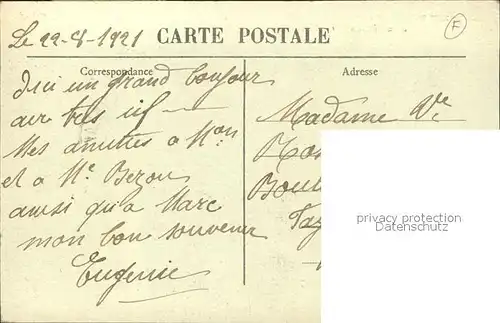 Le 22-8-1921 CARTE POSTALE
F
Correspondance
Adresse
D'ici un grand bonjour
air très vif
Mes amitiés a Mon
et a Me Bezou
ainsi qu'a Marc
mon bon souvenir
Eugenie
Madame Ve
privacy protection
Datenschutz